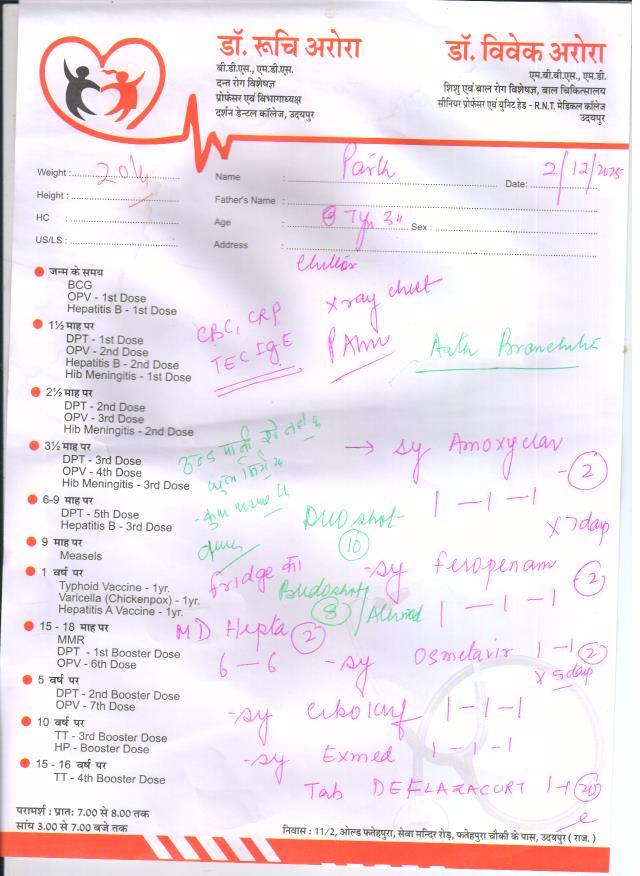 डॉ. रूचि अरोरा
बी.डी.एस., एम.डी.एस.
दन्त रोग विशेषज्ञ
प्रोफेसर एवं विभागाध्यक्ष
दर्शन डेन्टल कॉलेज, उदयपुर
डॉ. विवेक अरोरा
एम.बी.बी.एस., एम.डी.
शिशु एवं बाल रोग विशेषज्ञ, बाल चिकित्सालय
सीनियर प्रोफेसर एवं युनिट हेड - R.N.T. मेडिकल कॉलेज
उदयपुर
Weight :
Height :
HC :
US/LS :
Name : Parth
Date: 2/12/2025
Father's Name :
Age : 7yr 3
Sex :
Address :
X ray chest
CBC, CRP
TEC IgE
जन्म के समय
BCG
OPV - 1st Dose
Hepatitis B - 1st Dose
1½ माह पर
DPT - 1st Dose
OPV - 2nd Dose
Hepatitis B - 2nd Dose
Hib Meningitis - 1st Dose
2½ माह पर
DPT - 2nd Dose
OPV - 3rd Dose
Hib Meningitis - 2nd Dose
3½ माह पर
DPT - 3rd Dose
OPV - 4th Dose
Hib Meningitis - 3rd Dose
6-9 माह पर
DPT - 5th Dose
Hepatitis B - 3rd Dose
9 माह पर
Measels
1 वर्ष पर
Typhoid Vaccine - 1yr.
Varicella (Chickenpox) - 1yr.
Hepatitis A Vaccine - 1yr.
15 - 18 माह पर
MMR
DPT - 1st Booster Dose
OPV - 6th Dose
5 वर्ष पर
DPT - 2nd Booster Dose
OPV - 7th Dose
10 वर्ष पर
TT - 3rd Booster Dose
HP - Booster Dose
15 - 16 वर्ष पर
TT - 4th Booster Dose
→ sy Amoxyclav
- 2
1 - 1 - 1
x 7 days
Duoshot
10
fridge का
- sy feropenam
2
1 - 1 - 1
Budoshot
MD Hepta 2
6 - 6
- sy Osmetavir 1 - 1 2
x 5 days
- sy 1 - 1 - 1
- sy Exmed 1 - 1 - 1
Tab DEFLAZACORT 1-1 20
परामर्श : प्रातः 7.00 से 8.00 तक
सांय 3.00 से 7.00 बजे तक
निवास : 11/2, ओल्ड फतेहपुरा, सेवा मन्दिर रोड़, फतेहपुरा चौकी के पास, उदयपुर ( राज. )